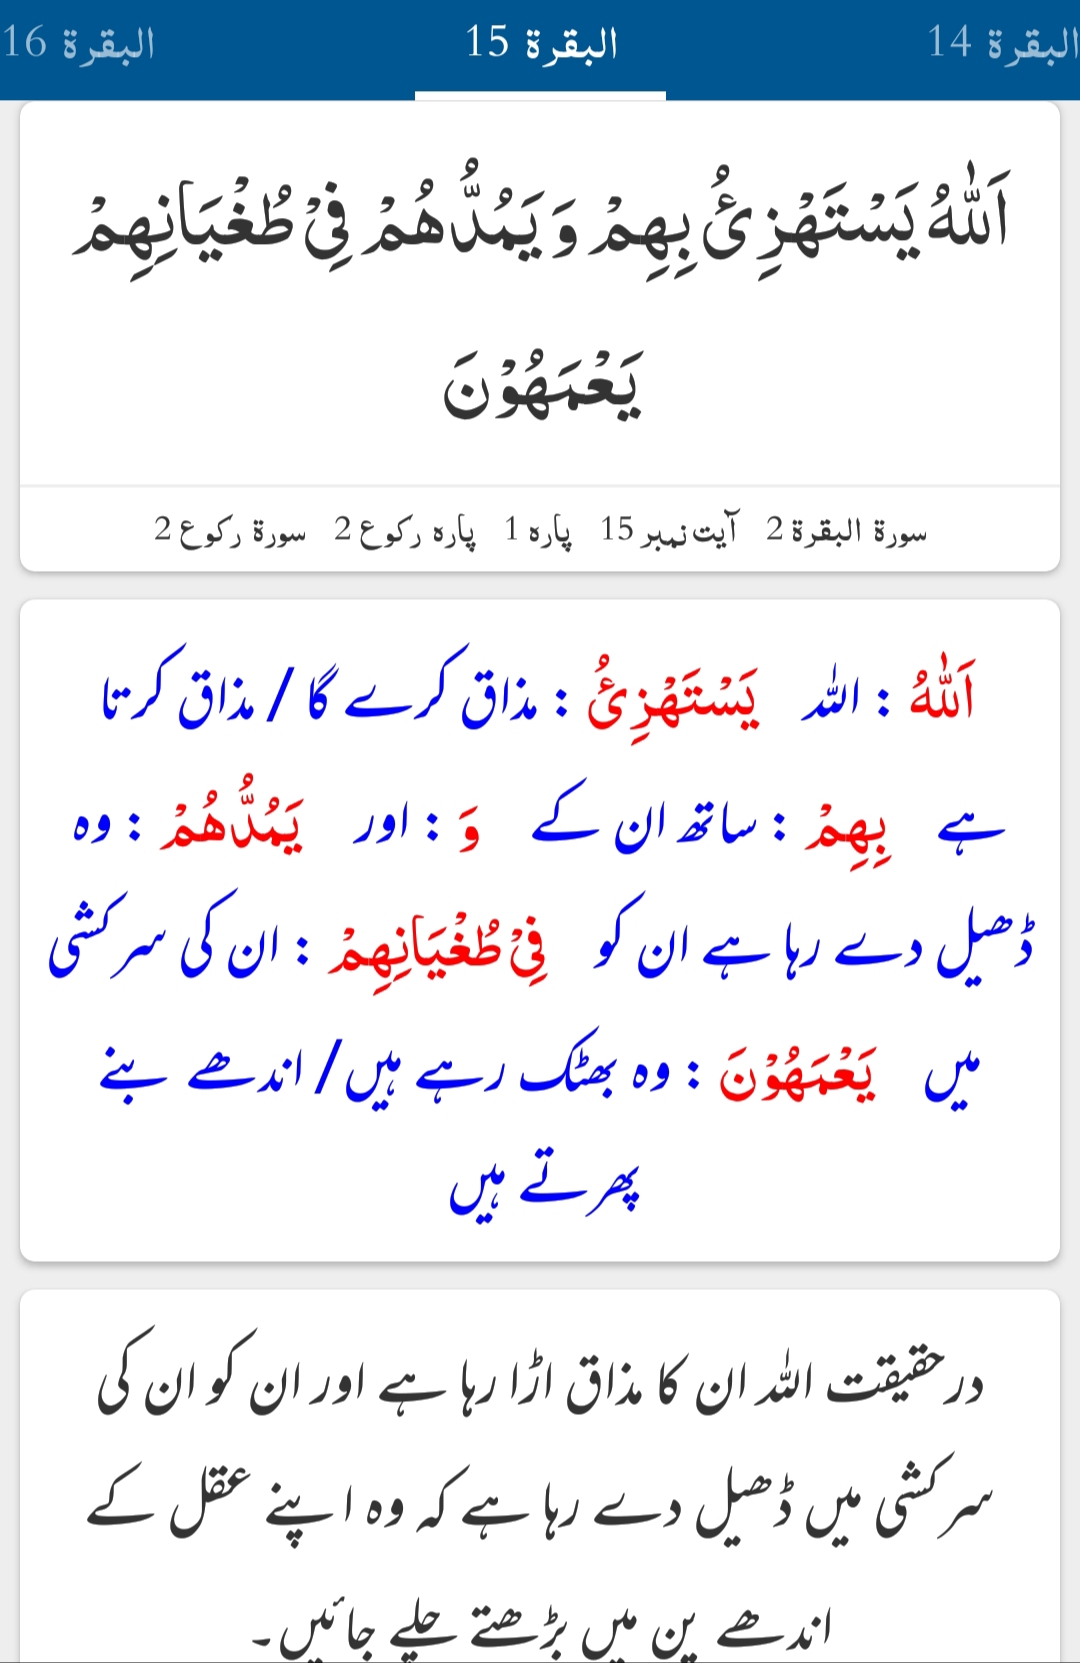 البقرة 14
البقرة 15
البقرة 16
اَللّٰهُ يَسْتَهْزِئُ بِهِمْ وَ يَمُدُّهُمْ فِيْ طُغْيَانِهِمْ
يَعْمَهُوْنَ
سورة البقرة 2 آیت نمبر 15 پارہ 1 پارہ رکوع 2 سورة رکوع 2
اَللّٰهُ : اللہ يَسْتَهْزِئُ : مذاق کرے گا / مذاق کرتا
ہے بِهِمْ : ساتھ ان کے وَ : اور يَمُدُّهُمْ : وہ
ڈھیل دے رہا ہے ان کو فِيْ طُغْيَانِهِمْ : ان کی سرکشی
میں يَعْمَهُوْنَ : وہ بھٹک رہے ہیں/ اندھے بنے
پھرتے ہیں
درحقیقت اللہ ان کا مذاق اڑا رہا ہے اور ان کو ان کی
سرکشی میں ڈھیل دے رہا ہے کہ وہ اپنے عقل کے
اندھے پن میں بڑھتے چلے جائیں۔